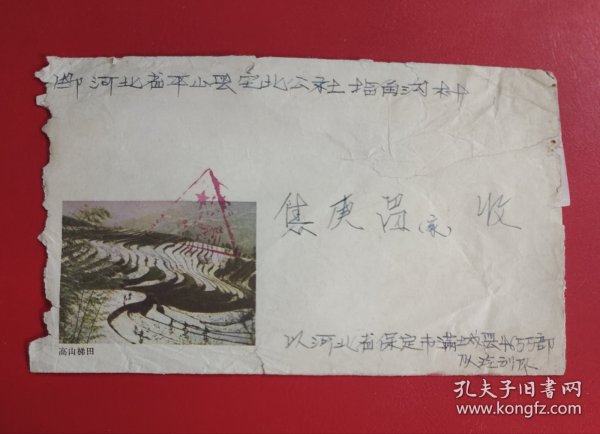 邮河北省平山县空北公社指角沟村
焦庚昌(家) 收
高山梯田
从河北省保定市满城县 部队
孔夫子旧书网
www.kongfz.com